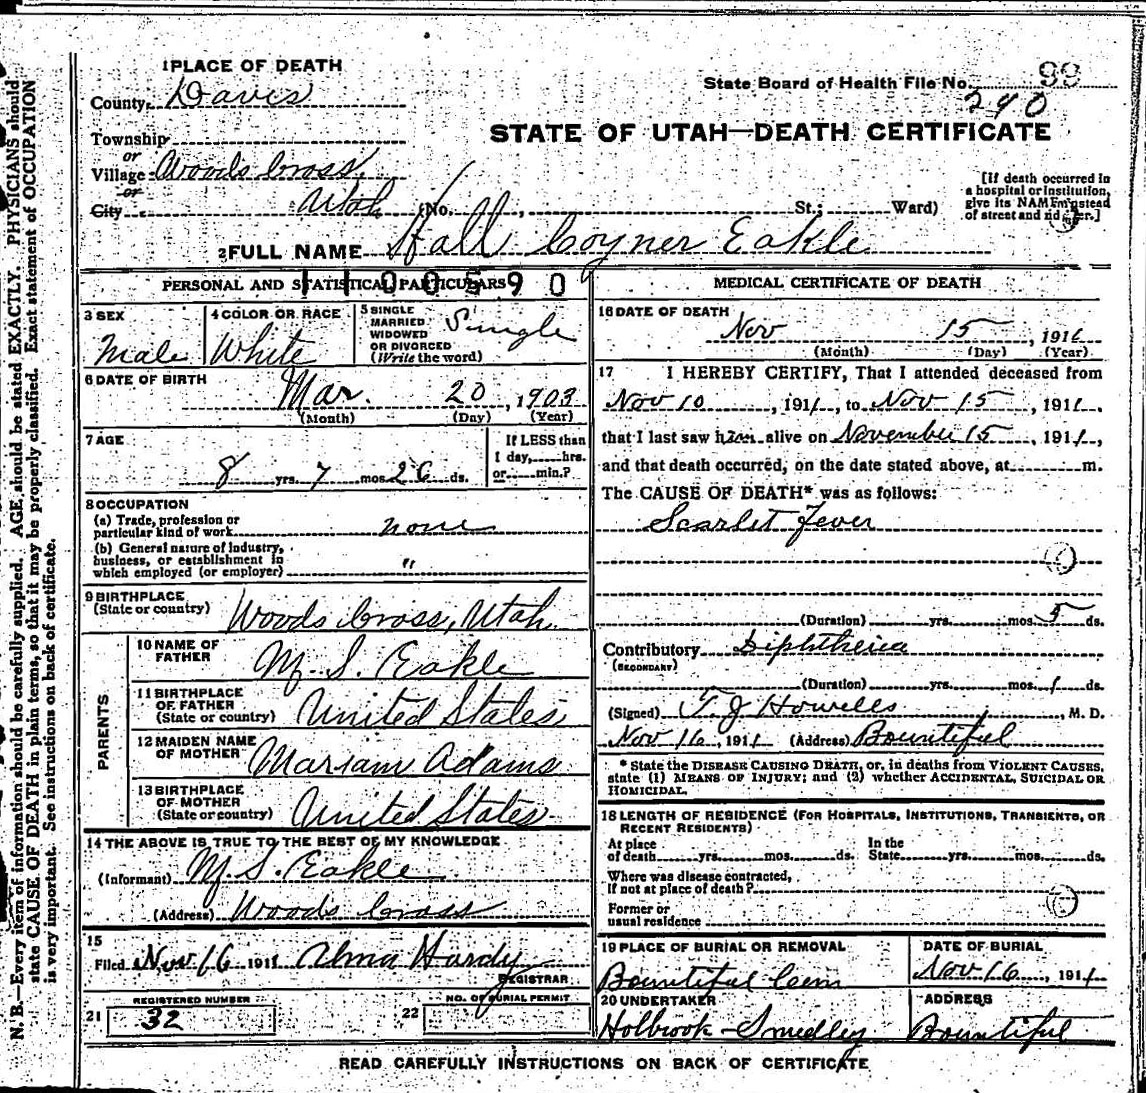 1 PLACE OF DEATH
State Board of Health File No. 99
County Davis
240
STATE OF UTAH—DEATH CERTIFICATE
Township
or
Village Woods Cross,
or
City Utah (No. , St.; Ward)
[If death occurred in
a hospital or institution,
give its NAME instead
of street and number.]
2 FULL NAME Hall Coyner Eakle
PERSONAL AND STATISTICAL PARTICULARS
1100590
3 SEX
Male
4 COLOR OR RACE
White
5 SINGLE
MARRIED
WIDOWED
OR DIVORCED
(Write the word)
Single
6 DATE OF BIRTH
Mar. 20, 1903
(Month) (Day) (Year)
7 AGE
8 yrs. 7 mos. 26 ds.
If LESS than
1 day, hrs.
or min.?
8 OCCUPATION
(a) Trade, profession or
particular kind of work none
(b) General nature of industry,
business, or establishment in
which employed (or employer) "
9 BIRTHPLACE
(State or country) Woods Cross, Utah
PARENTS
10 NAME OF
FATHER M. S. Eakle
11 BIRTHPLACE
OF FATHER
(State or country) United States
12 MAIDEN NAME
OF MOTHER Mariam Adams
13 BIRTHPLACE
OF MOTHER
(State or country) United States
14 THE ABOVE IS TRUE TO THE BEST OF MY KNOWLEDGE
(Informant) M. S. Eakle
(Address) Woods Cross
15
Filed Nov 16 1911 Alma Hardy
REGISTRAR
21 REGISTERED NUMBER
32
22 NO. OF BURIAL PERMIT
MEDICAL CERTIFICATE OF DEATH
16 DATE OF DEATH
Nov 15, 191
(Month) (Day) (Year)
17 I HEREBY CERTIFY, That I attended deceased from
Nov 10, 1911, to Nov 15, 1911,
that I last saw him alive on November 15, 1911,
and that death occurred, on the date stated above, at m.
The CAUSE OF DEATH* was as follows:
Scarlet Fever
(Duration) yrs. mos. 5 ds.
Contributory Diphtheria
(SECONDARY)
(Duration) yrs. mos. 1 ds.
(Signed) T. J Howells, M. D.
Nov 16, 1911 (Address) Bountiful
* State the DISEASE CAUSING DEATH, or, in deaths from VIOLENT CAUSES,
state (1) MEANS OF INJURY; and (2) whether ACCIDENTAL, SUICIDAL OR
HOMICIDAL.
18 LENGTH OF RESIDENCE (FOR HOSPITALS, INSTITUTIONS, TRANSIENTS, OR
RECENT RESIDENTS)
At place
of death yrs. mos. ds. In the
State yrs. mos. ds.
Where was disease contracted,
if not at place of death?
Former or
usual residence
19 PLACE OF BURIAL OR REMOVAL
Bountiful Cem
DATE OF BURIAL
Nov 16, 1911
20 UNDERTAKER
Holbrook Smedley
ADDRESS
Bountiful
READ CAREFULLY INSTRUCTIONS ON BACK OF CERTIFICATE
N. B.—Every item of information should be carefully supplied. AGE should be stated EXACTLY. PHYSICIANS should
state CAUSE OF DEATH in plain terms, so that it may be properly classified. Exact statement of OCCUPATION
is very important. See instructions on back of certificate.